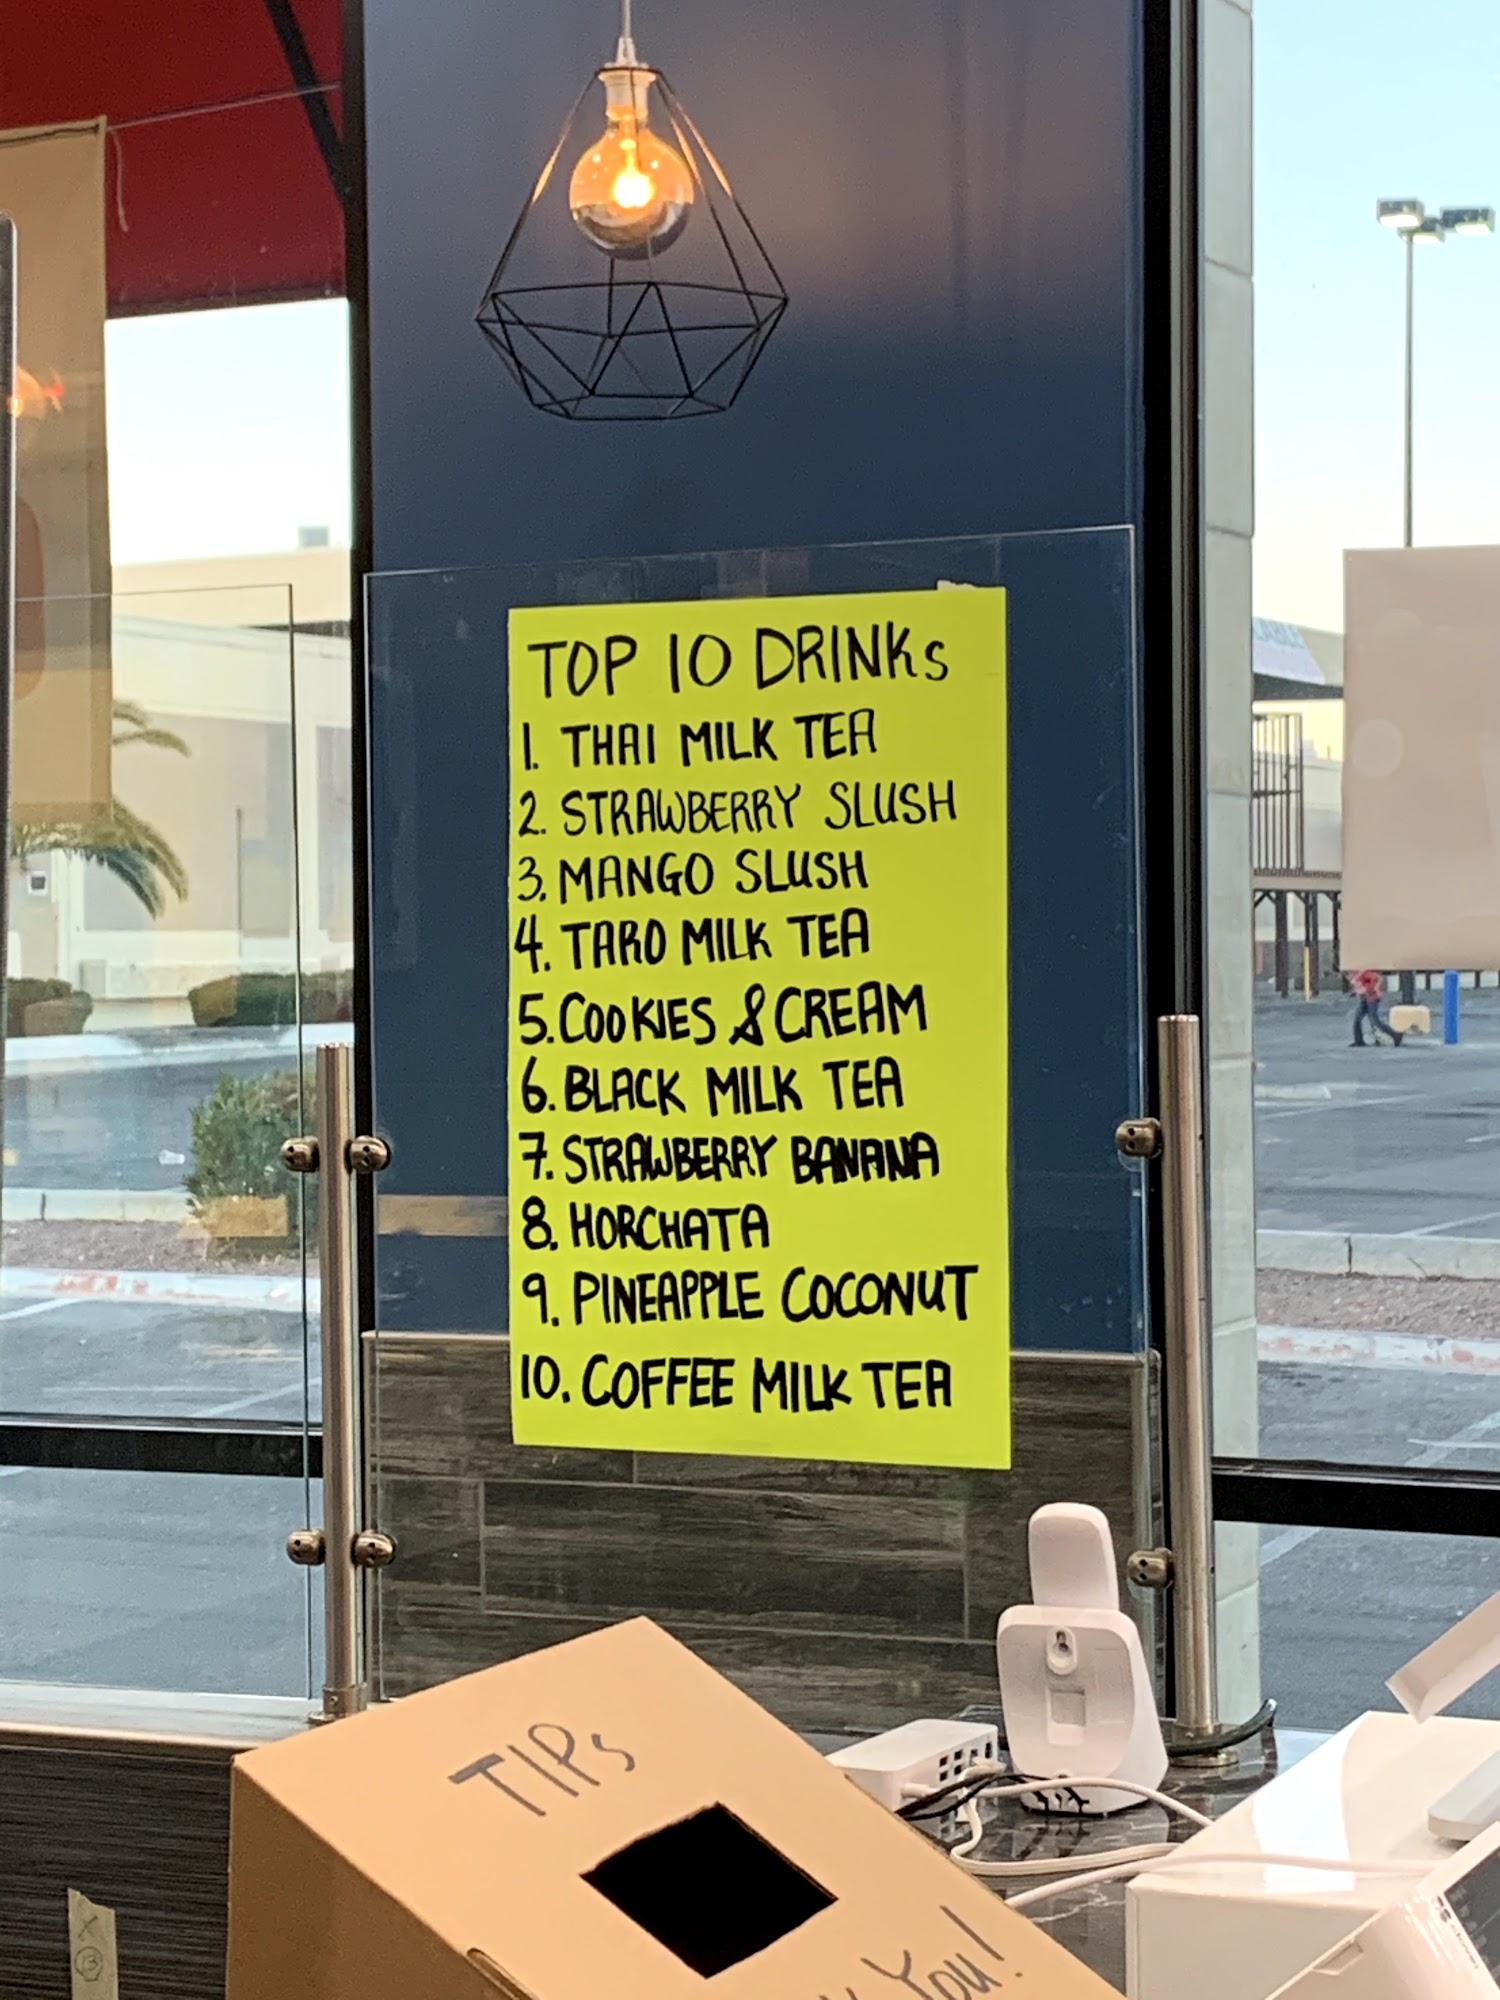 TOP 10 DRINKs
1. THAI MILK TEA
2. STRAWBERRY SLUSH
3. MANGO SLUSH
4. TARO MILK TEA
5. COOKIES & CREAM
6. BLACK MILK TEA
7. STRAWBERRY BANANA
8. HORCHATA
9. PINEAPPLE COCONUT
10. COFFEE MILK TEA
TIPs
You!
X
13